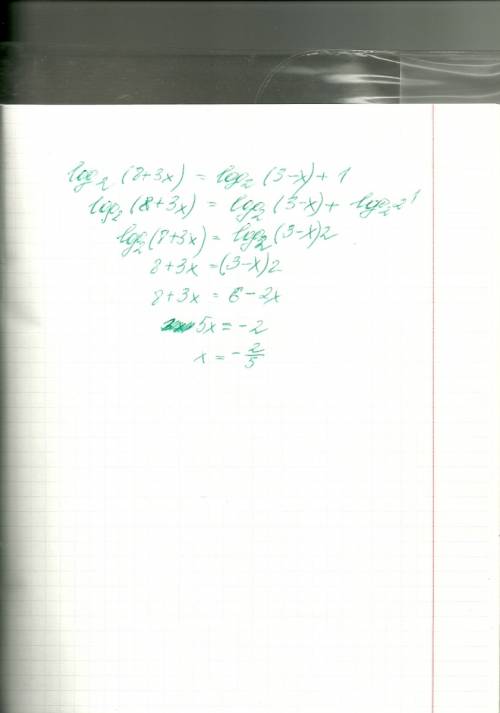 log₂ (8+3x) = log₂ (3-x) + 1
log₂ (8+3x) = log₂ (3-x) + log₂ 2¹
log₂ (8+3x) = log₂ (3-x)2
8+3x = (3-x)2
8+3x = 6-2x
5x = -2
x = -2/5